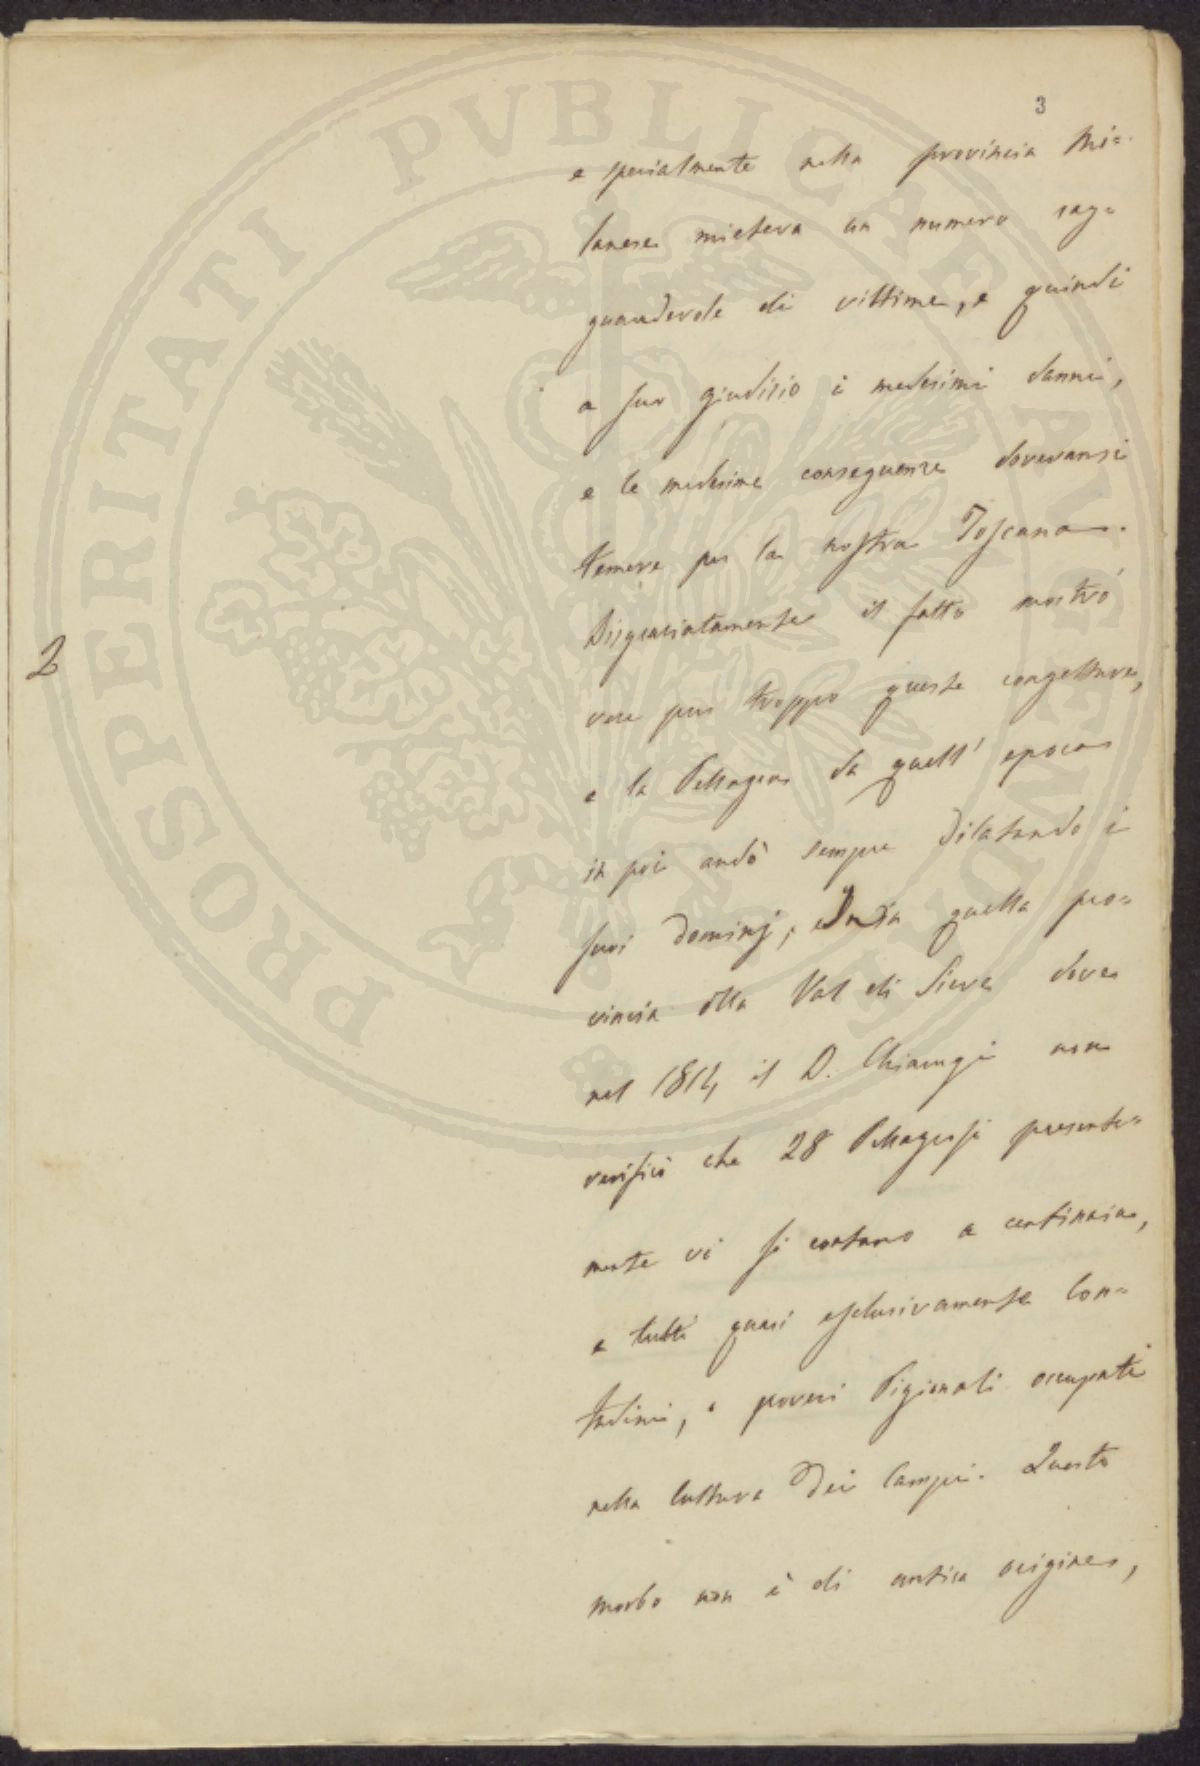 3
e specialmente nella provincia Mi=
lanese mieteva un numero rag=
guardevole di vittime, e quindi
a suo giudizio i medesimi danni,
e le medesime conseguenze dovevansi
temere per la nostra Toscana.
Disgraziatamente il fatto mostrò
vere pur troppo queste congetture,
e la Pellagra da quell' epoca
in poi andò sempre dilatando i
suoi dominj; quella pro=
vincia della Val di Sieve dove
nel 1814 il D. Chiarugi non
verificò che 28 Pellagrosi presente=
mente vi si contano a centinaia,
e tutti quasi esclusivamente Con=
tadini, o poveri Pigionali occupati
nella Cultura dei Campi. Questo
morbo non è di antica origine,
2
PROSPERITATI PVBLICAE AVGENDAE